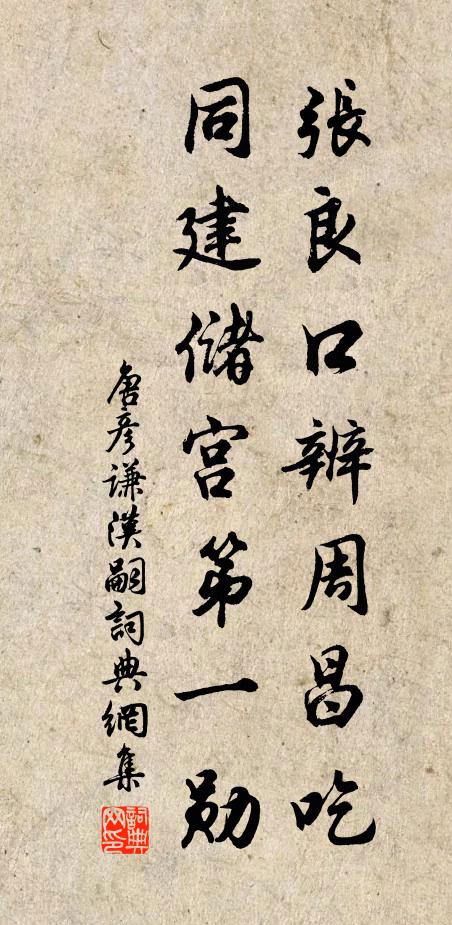 張良口辨周昌吃
同建儲宮第一勛
唐彥謙漢嗣詞典網集
詞典網印